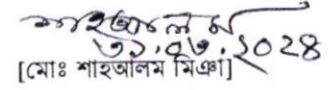 শাহআলম
৩১.০৭.২০২৪
[মোঃ শাহআলম মিঞা]